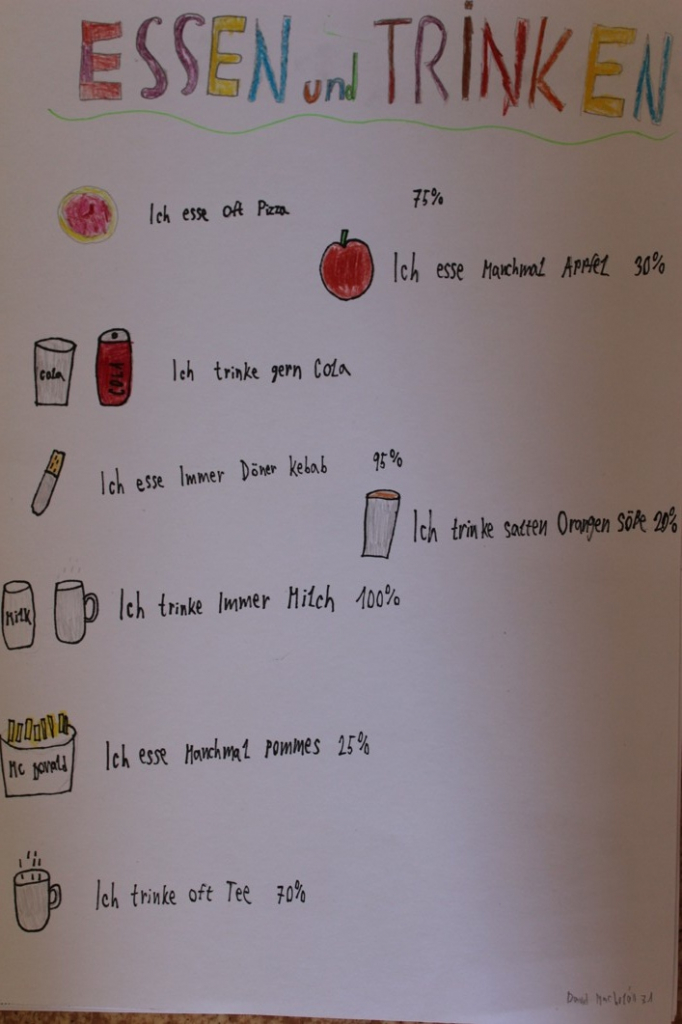 ESSEN und TRINKEN
Ich esse oft Pizza 75%
Ich esse Manchmal APPfel 30%
Cola
COLA
Ich trinke gern Cola
Ich esse Immer Döner kebab 95%
Ich trinke salten Orangen Söße 20%
Milk
Ich trinke Immer Milch 100%
Mc Donald
Ich esse Manchmal pommes 25%
Ich trinke oft Tee 70%
David